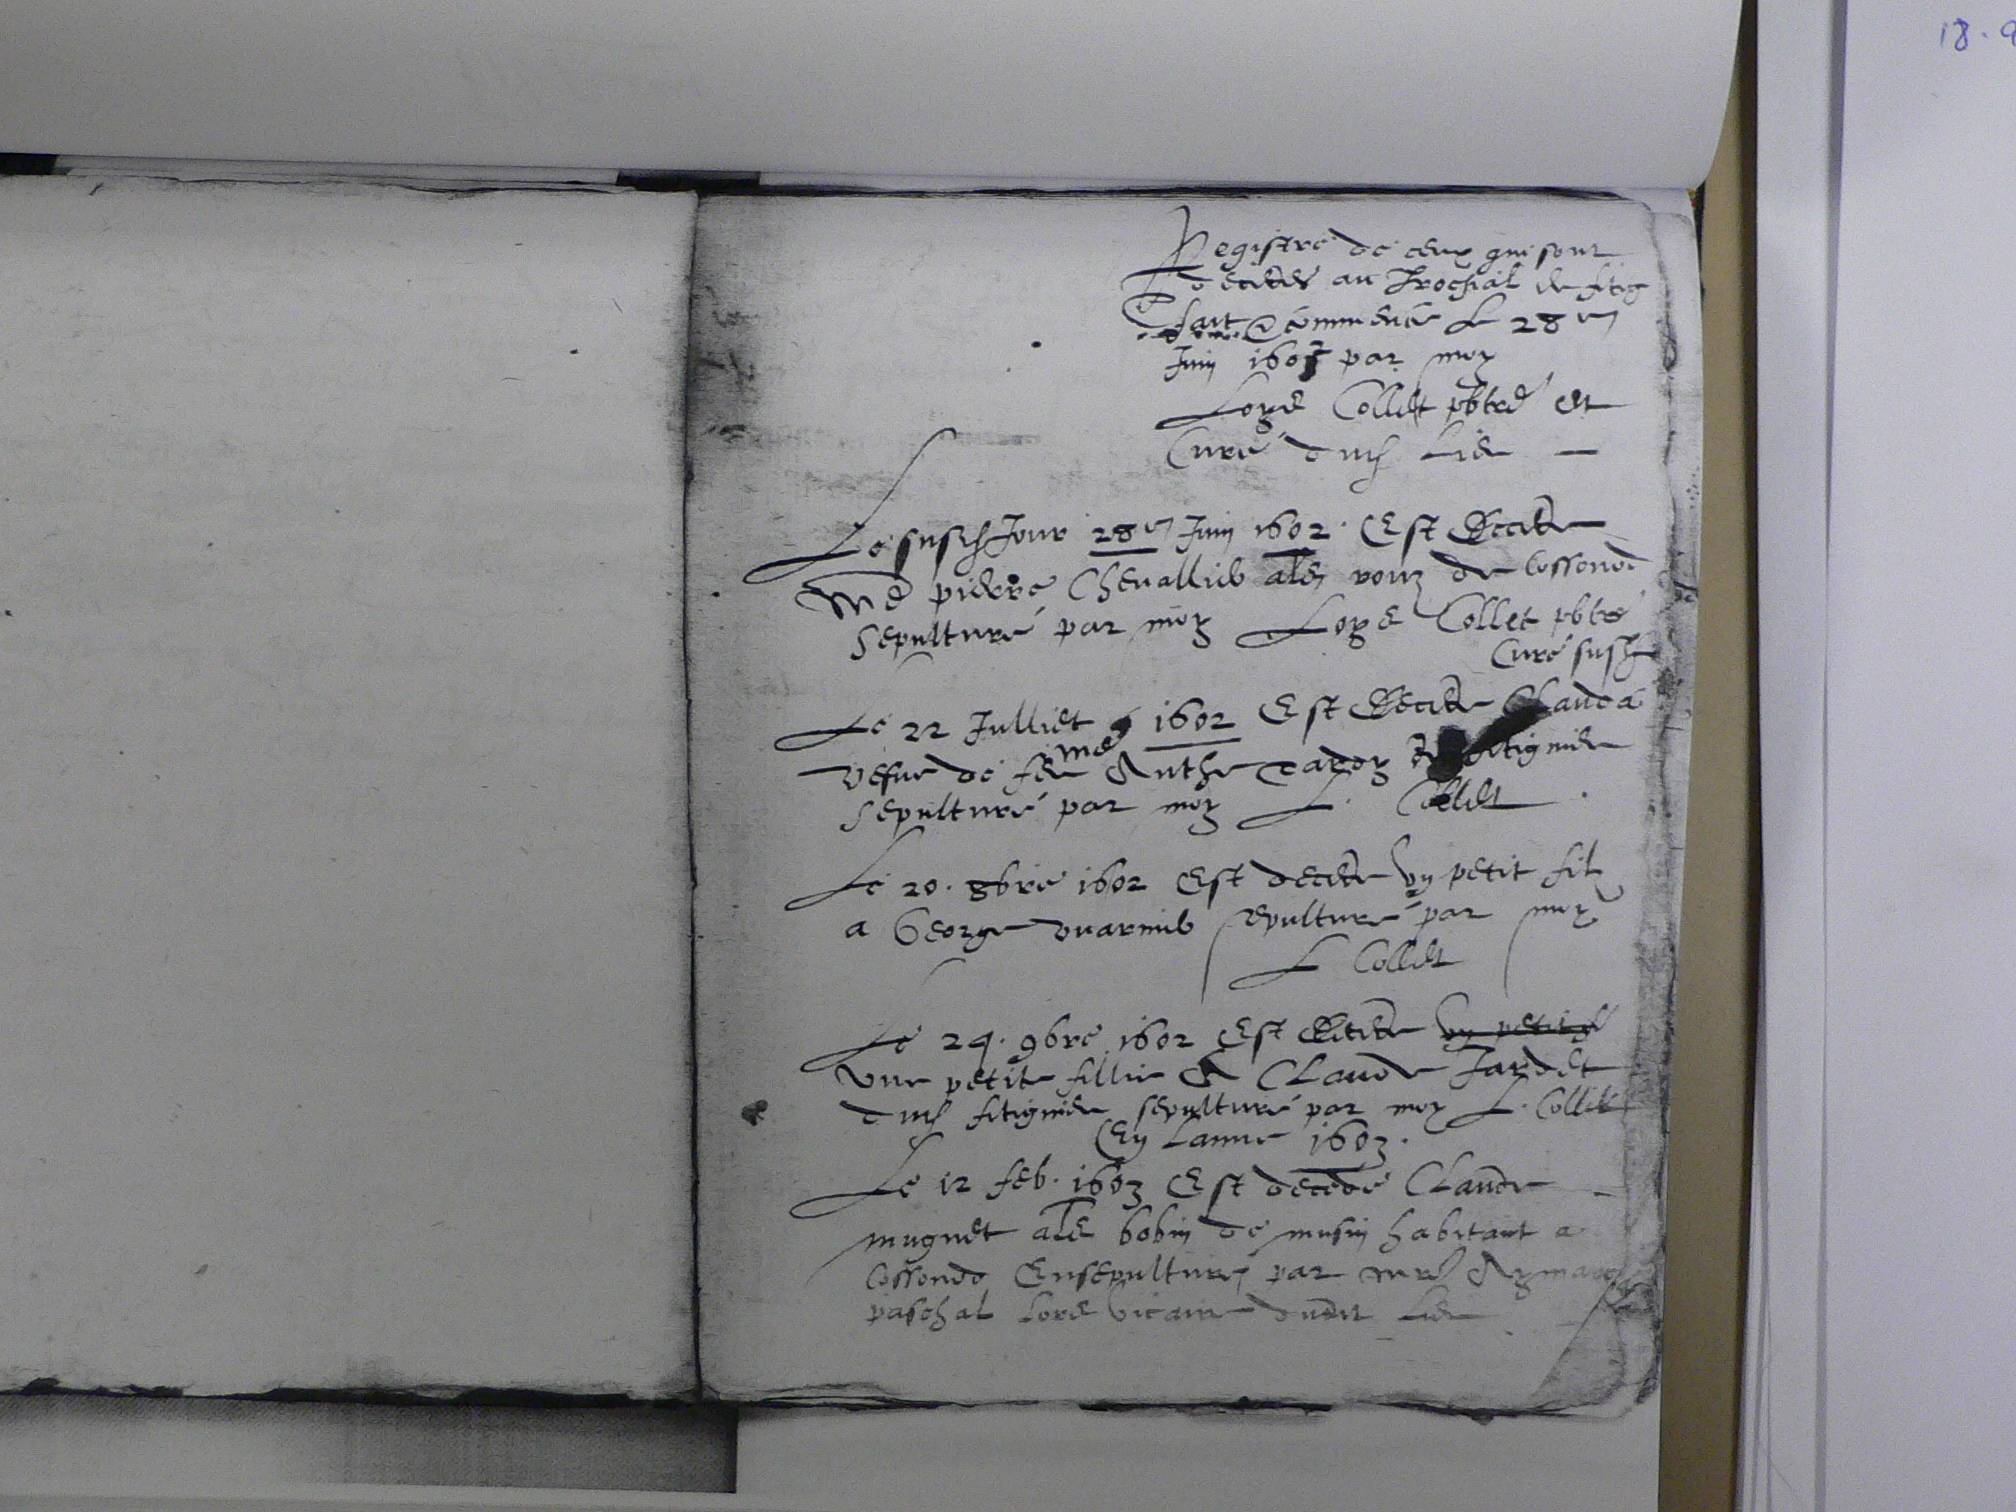 18.
Registre de ceux qui sont
decedes au
faict & commencé le 28en
Juin 160 par moy
Loys Collet pbtre et
Curé dud lieu
Le susd Jour 28en Juin 1602 Est decede
Me pierre Chevallier als de Cossond
sepulturé par moy Loys Collet pbtre
Curé susd
Le 22 Julliet 1602 Est decede Clauda
vefve de feu Me Anthe fitignieu
sepulturé par moy L. Collet
Le 20. 8bre 1602 Est decede un petit filz
a George sepulturé par moy
L Collet
Le 24. 9bre 1602 Est decede un petit
une petite fillie a Claude Jardet
dud fitignieu sepulturé par moy L. Collet
En Lanne 1603.
Le 12 feb. 1603 Est decede Claude
mugnet als bobin de musin habitant a
Cossondo Ensepulturé par Aymard
paschal vicaire dudit lieu